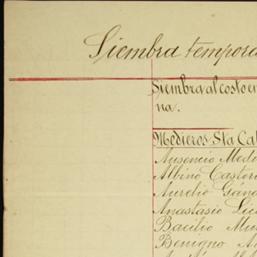 Siembra tempora
Siembra al costo en
na.
Medieros Sta Cat
Ausencio Medi
Albino Castor
Aurelio Gánd
Anastasio
Bacilio Mu
Benigno